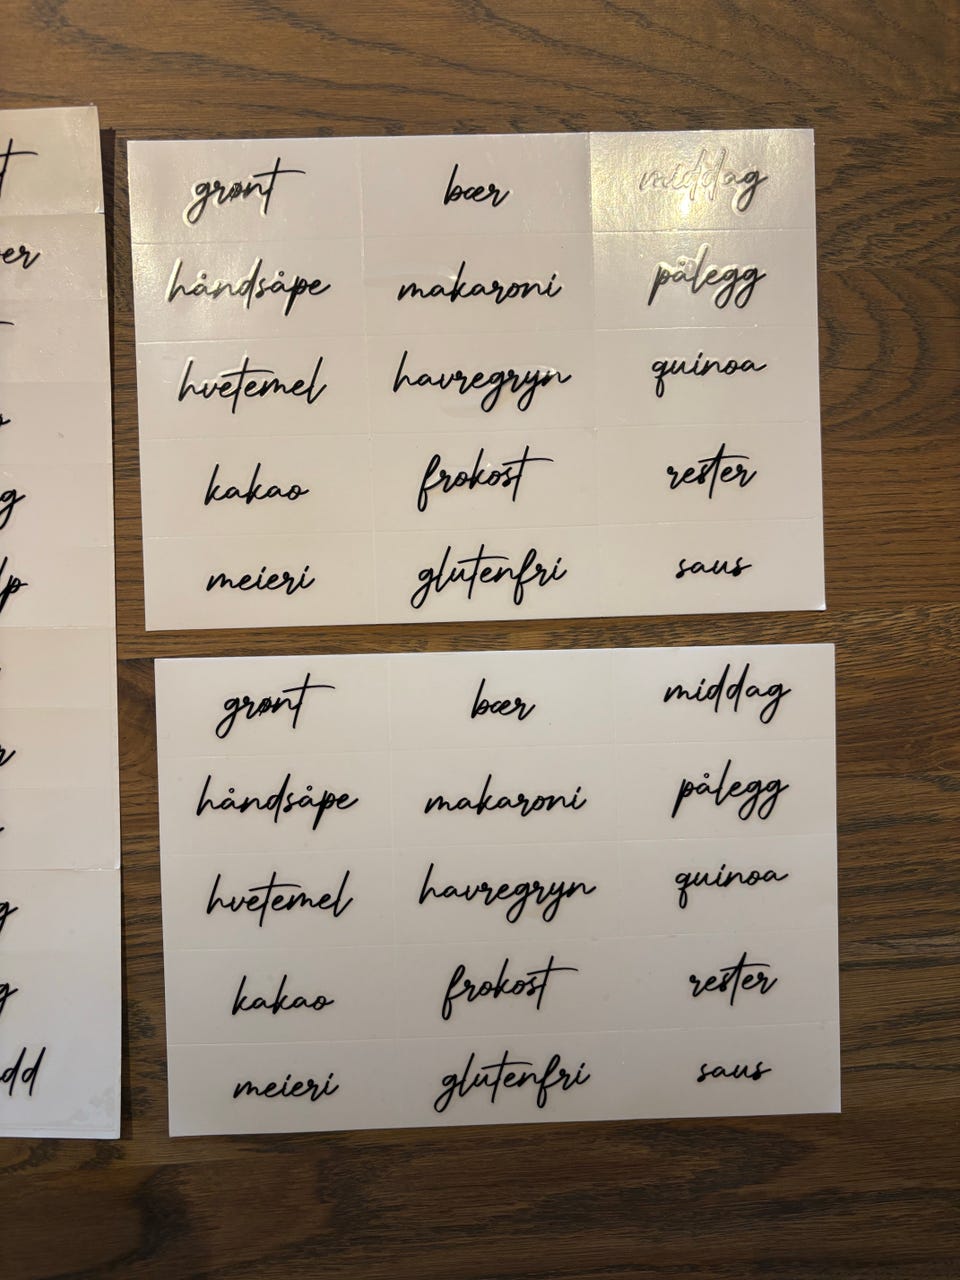 grønt bær middag
håndsåpe makaroni pålegg
hvetemel havregryn quinoa
kakao frokost rester
meieri glutenfri saus
grønt bær middag
håndsåpe makaroni pålegg
hvetemel havregryn quinoa
kakao frokost rester
meieri glutenfri saus